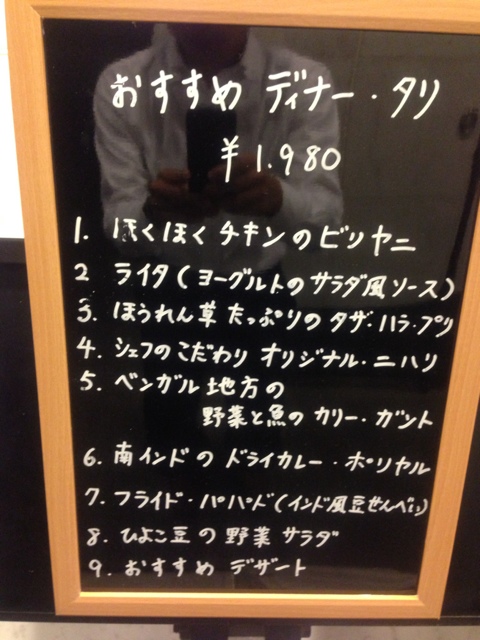 おすすめ ディナー・タリ
¥1.980
1. ほくほくチキンのビリヤニ
2 ライタ(ヨーグルトのサラダ風ソース)
3. ほうれん草たっぷりのタザ・ハラ・プリ
4. シェフのこだわり オリジナル・ニハリ
5. ベンガル地方の
野菜と魚のカリー・ガント
6. 南インドのドライカレー・ポリヤル
7. フライド・パパド(インド風豆せんべい)
8. ひよこ豆の野菜サラダ
9. おすすめ デザート